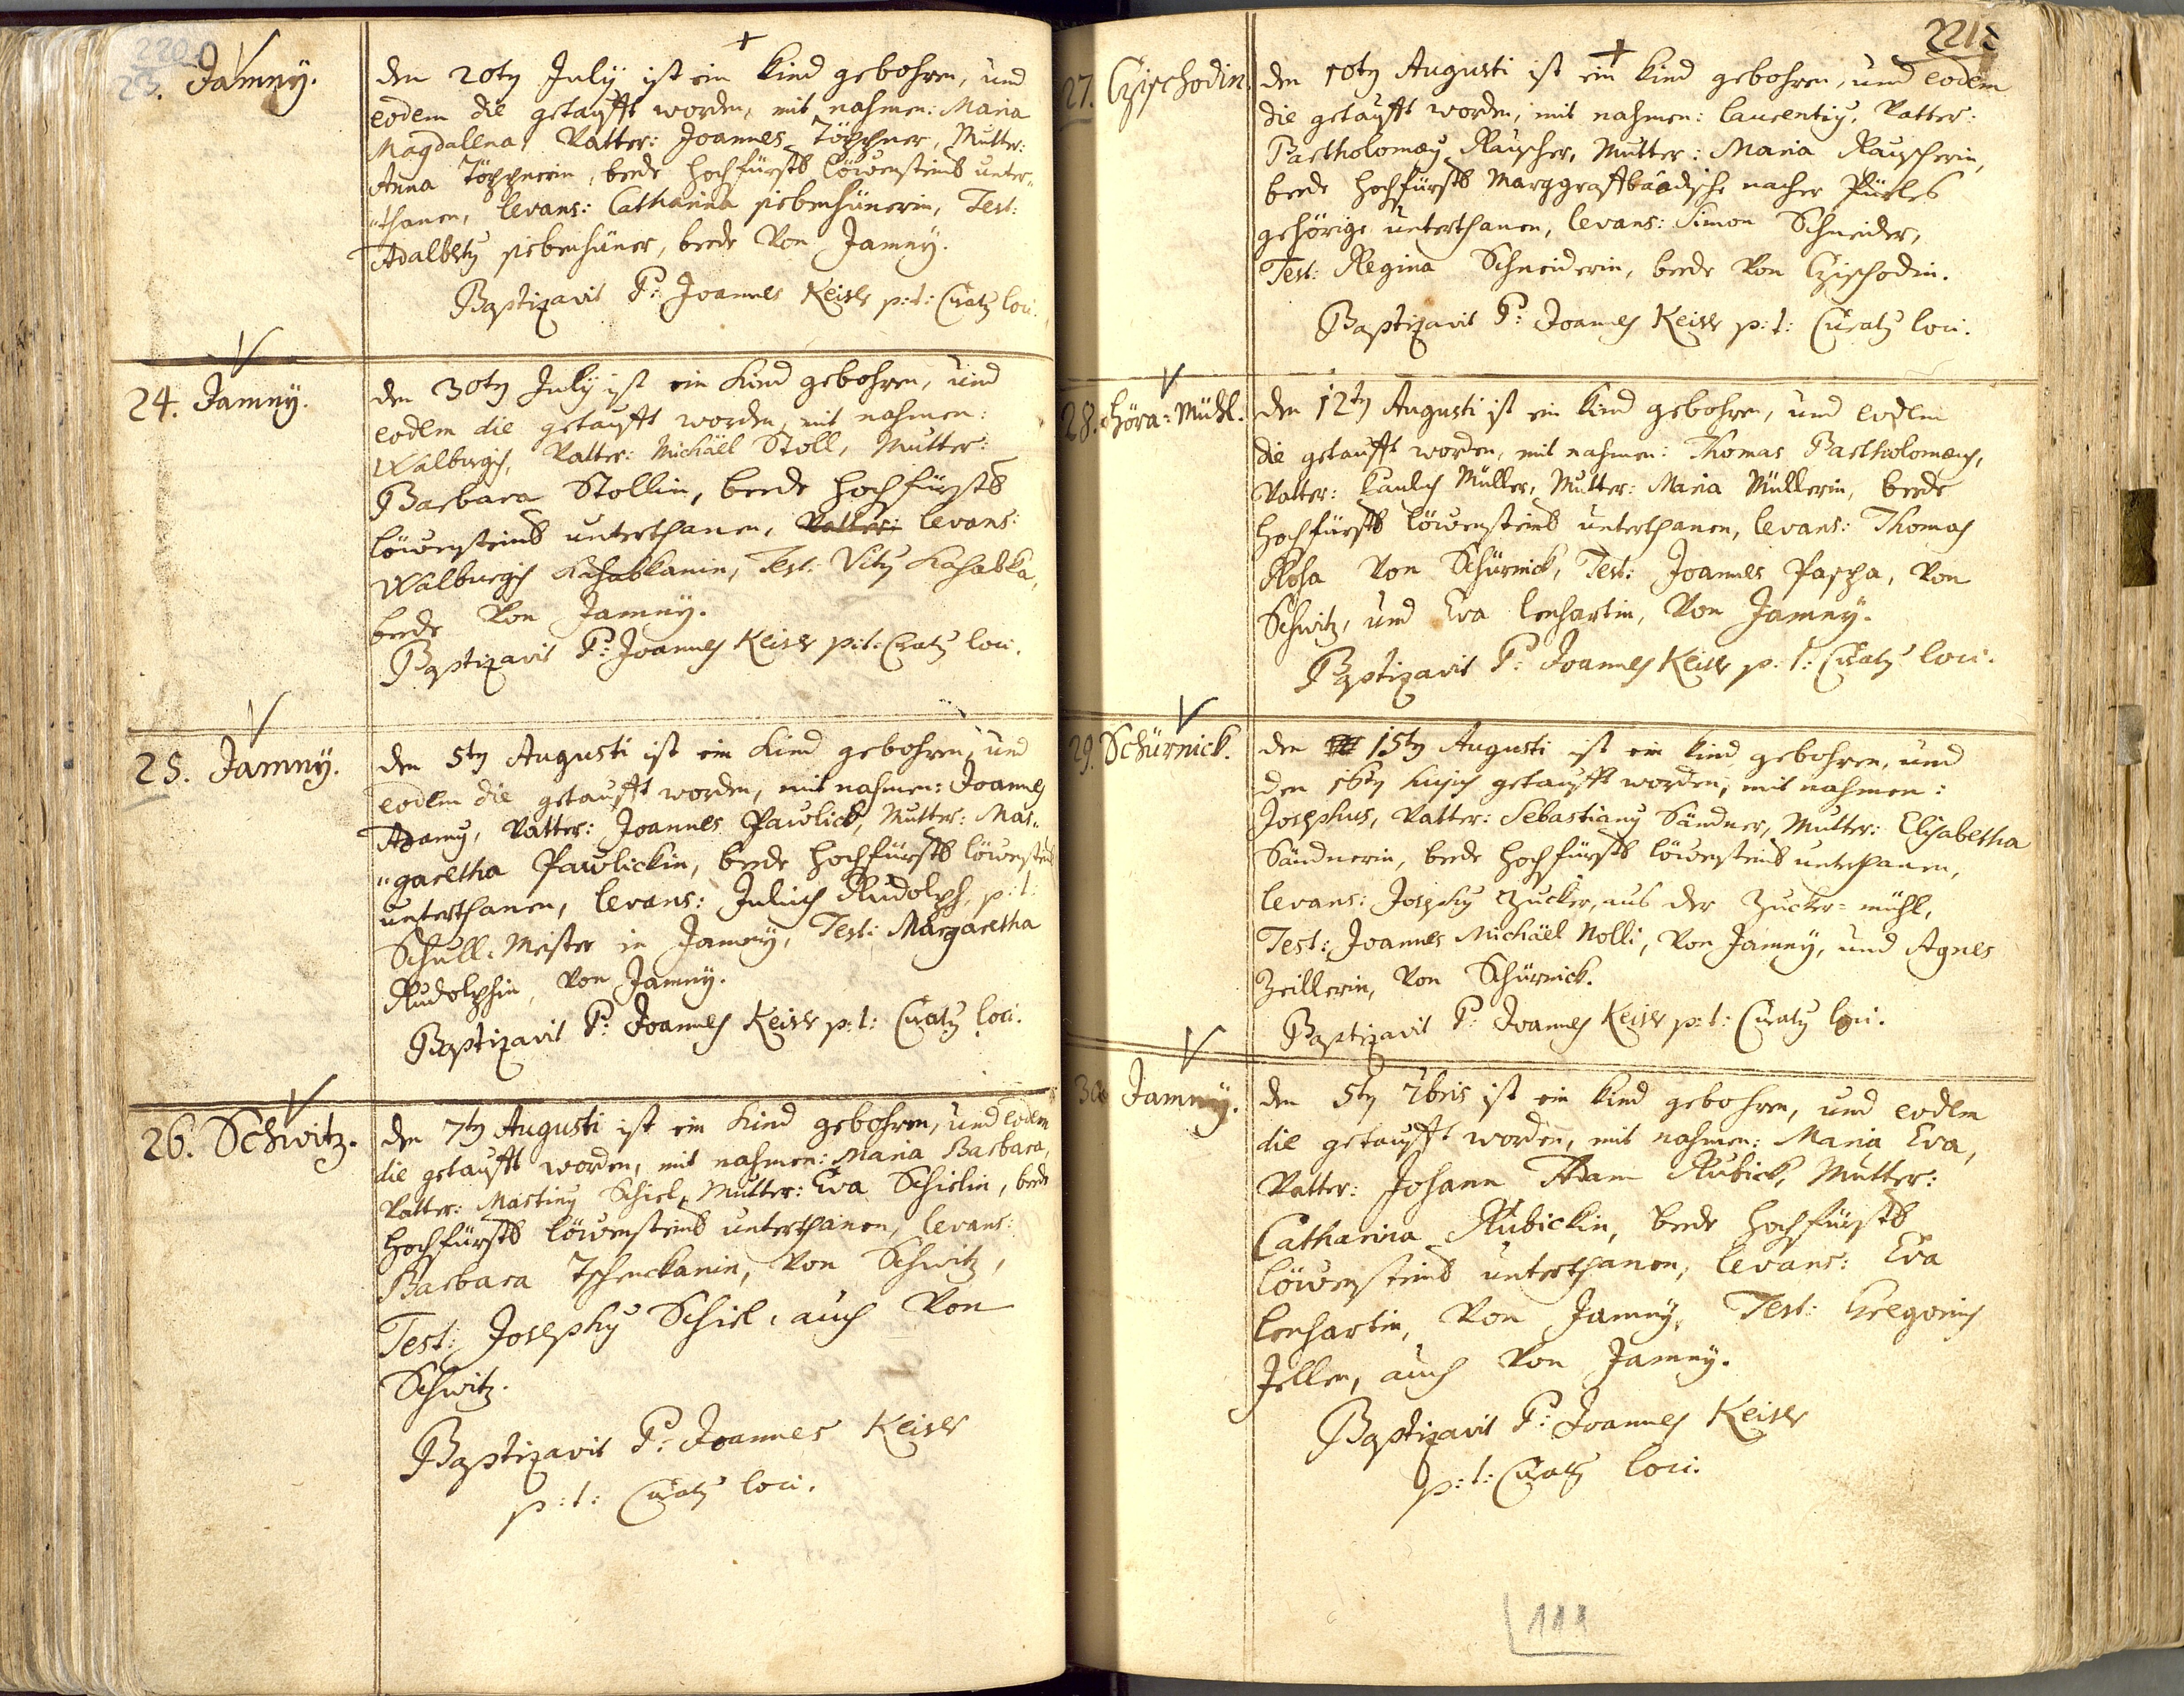 220
23. Jamny.
den 20ty July ist ein Kind gebohren, und
eodem die getaufft worden, mit nahmen: Maria
Magdalena, Vatter: Joannes Töppner, Mutter:
Anna Töppnerin, beede hochfürstl. Löwensteins unter-
thanen, levans: Catharina siebenhünerin, Test:
Adalberty siebenhüner, beede von Jamny.
Baptizavit P: Joannes Keiser p:t: Curaty loci.
24. Jamny.
den 30ty July ist ein Kind gebohren, und
eodem die getaufft worden, mit nahmen:
Walburgis, Vatter: Michäel Stoll, Mutter:
Barbara Stollin, beede hochfürstl.
löwensteins unterthanen, Vatter: levans:
Walburgis Kahabkanin, Test: Vity Kahabka,
beede von Jamny.
Baptizavit P: Joannes Keiser p:t: Curaty loci.
25. Jamny.
den 5ty Augusti ist ein Kind gebohren, und
eodem die getaufft worden, mit nahmen: Joannes
Adamy, Vatter: Joannes Pawlick, Mutter: Mar-
garetha Pawlickin, beede hochfürstl. löwensteins
unterthanen, levans: Julius Rudolph, p:t:
Schull-Meister in Jamny, Test: Margaretha
Rudolphin, von Jamny.
Baptizavit P: Joannes Keiser p:t: Curaty loci.
26. Schwitz.
den 7ty Augusti ist ein Kind gebohren, und eodem
die getaufft worden, mit nahmen: Maria Barbara,
Vatter: Martiny Schiel, Mutter: Eva Schielin, beede
hochfürstl. löwensteins unterthanen, levans:
Barbara Tschenckanin, von Schwitz,
Test: Josephy Schiel, auch von
Schwitz.
Baptizavit P: Joannes Keiser
p:t: Curaty loci.
221
27. Czischodin.
den 10ty Augusti ist ein Kind gebohren, und eodem
die getaufft worden, mit nahmen: laurentiy, Vatter:
Bartholomæy Rauscher, Mutter: Maria Rauscherin,
beede hochfürstl. Marggraffbaadische nacher Pürles
gehörige unterthanen, levans: Simon Schneider,
Test: Regina Schneiderin, beede von Czischodin.
Baptizavit P: Joannes Keiser p:t: Curaty loci.
28. Höra-Mühl.
den 12ty Augusti ist ein Kind gebohren, und eodem
die getaufft worden, mit nahmen: Thomas Bartholomæus,
Vatter: Paulus Müller, Mutter: Maria Müllerin, beede
hochfürstl. löwensteins unterthanen, levans: Thomas
Rosa von Schürnick, Test: Joannes Pascha, von
Schwitz, und Eva lenhartin, von Jamny.
Baptizavit P: Joannes Keiser p:t: Curaty loci.
29. Schürnick.
den 15ty Augusti ist ein Kind gebohren, und
den 16ty hujus getaufft worden, mit nahmen:
Josephus, Vatter: Sebastiany Sändner, Mutter: Elisabetha
Sändnerin, beede hochfürstl. löwensteins unterthanen,
levans: Josephy Zucker, aus der Zucker-mühl,
Test: Joannes Michäel Nolli, von Jamny, und Agnes
Zeillerin, von Schürnick.
Baptizavit P: Joannes Keiser p:t: Curaty loci.
30 Jamny.
den 5ty 7bris ist ein Kind gebohren, und eodem
die getaufft worden, mit nahmen: Maria Eva,
Vatter: Johann Adam Rubick, Mutter:
Catharina Rubickin, beede hochfürstl.
löwensteins unterthanen, levans: Eva
lenhartin, von Jamny, Test: Gregorius
Jellen, auch von Jamny.
Baptizavit P: Joannes Keiser
p:t: Curaty loci.
111